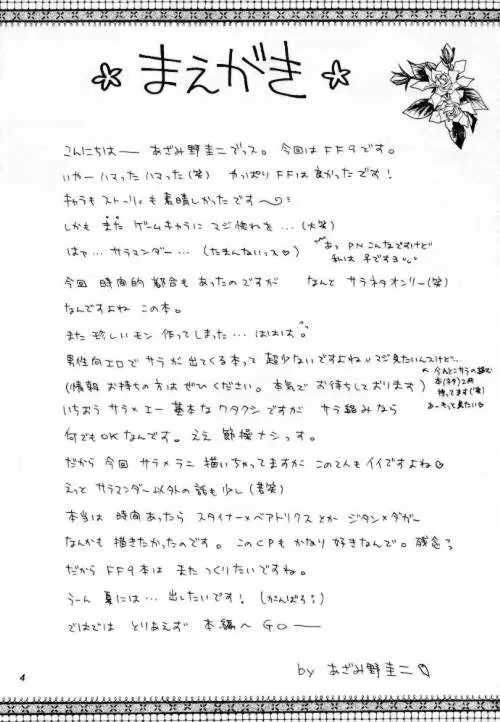 ☆ まえがき ☆
こんにちはー あざみ野圭二でっス。今回はFF9です。
いやー ハマったハマった(笑) やっぱりFFは良かったです!
キャラもストーリィも素晴しかったです〜
しかも また ゲームキャラに マジ惚れを…(火笑)
はぁ… サラマンダー…(たまんないっス♡)
あっ PNこんなですけど
私は ♀ですヨ
今回 時間的都合もあったのですが なんと サラネタオンリー(笑)
なんですよね この本。
また珍しいモン 作ってしまった… ははは。
男性向エロで サラが出てくる本って 超少ないですよね マジ見たいんスけど…
(情報 お持ちの方は ぜひください。本気で お待ちしております)
持ってます(笑)
あーもって見たい
いちおう サラ×エー 基本なワタクシですが サラ絡みなら
何でもOKなんです。ええ 節操ナシっす。
だから 今回 サラ×ラニ 描いちゃってますが この2人も イイですよね♡
えっと サラマンダー以外の話も少し(苦笑)
本当は 時間あったら スタイナー×ベアトリクスとか ジタン×ダガー
なんかも 描きたかったのです。このCPも かなり好きなんで。残念
だから FF9本は またつくりたいですね。
うーん 夏には… 出したいです!(がんばろ)
ではでは とりあえず 本編へ GOー
by あざみ野圭二
4